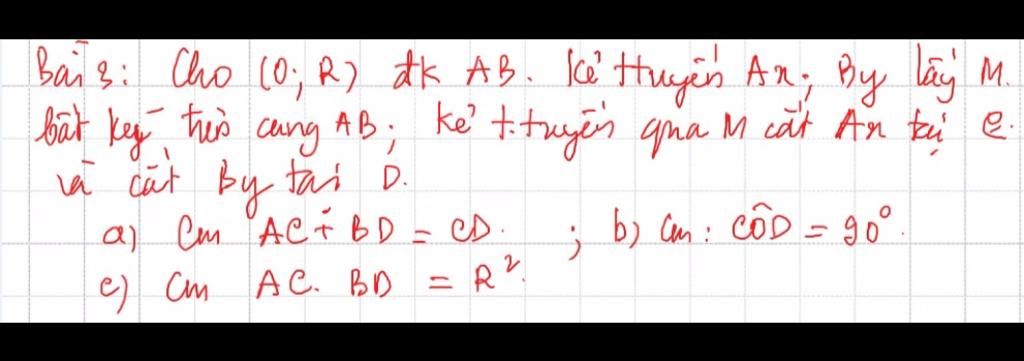 Bài 3: Cho (O; R) đk AB. Kẻ ttuyến Ax; By lấy M.
bất kỳ trên cung AB; kẻ t.tuyến qua M cắt Ax tại C.
và cắt By tại D.
a) Cm AC + BD = CD. ; b) Cm: CÔD = 90°.
c) Cm AC. BD = R².